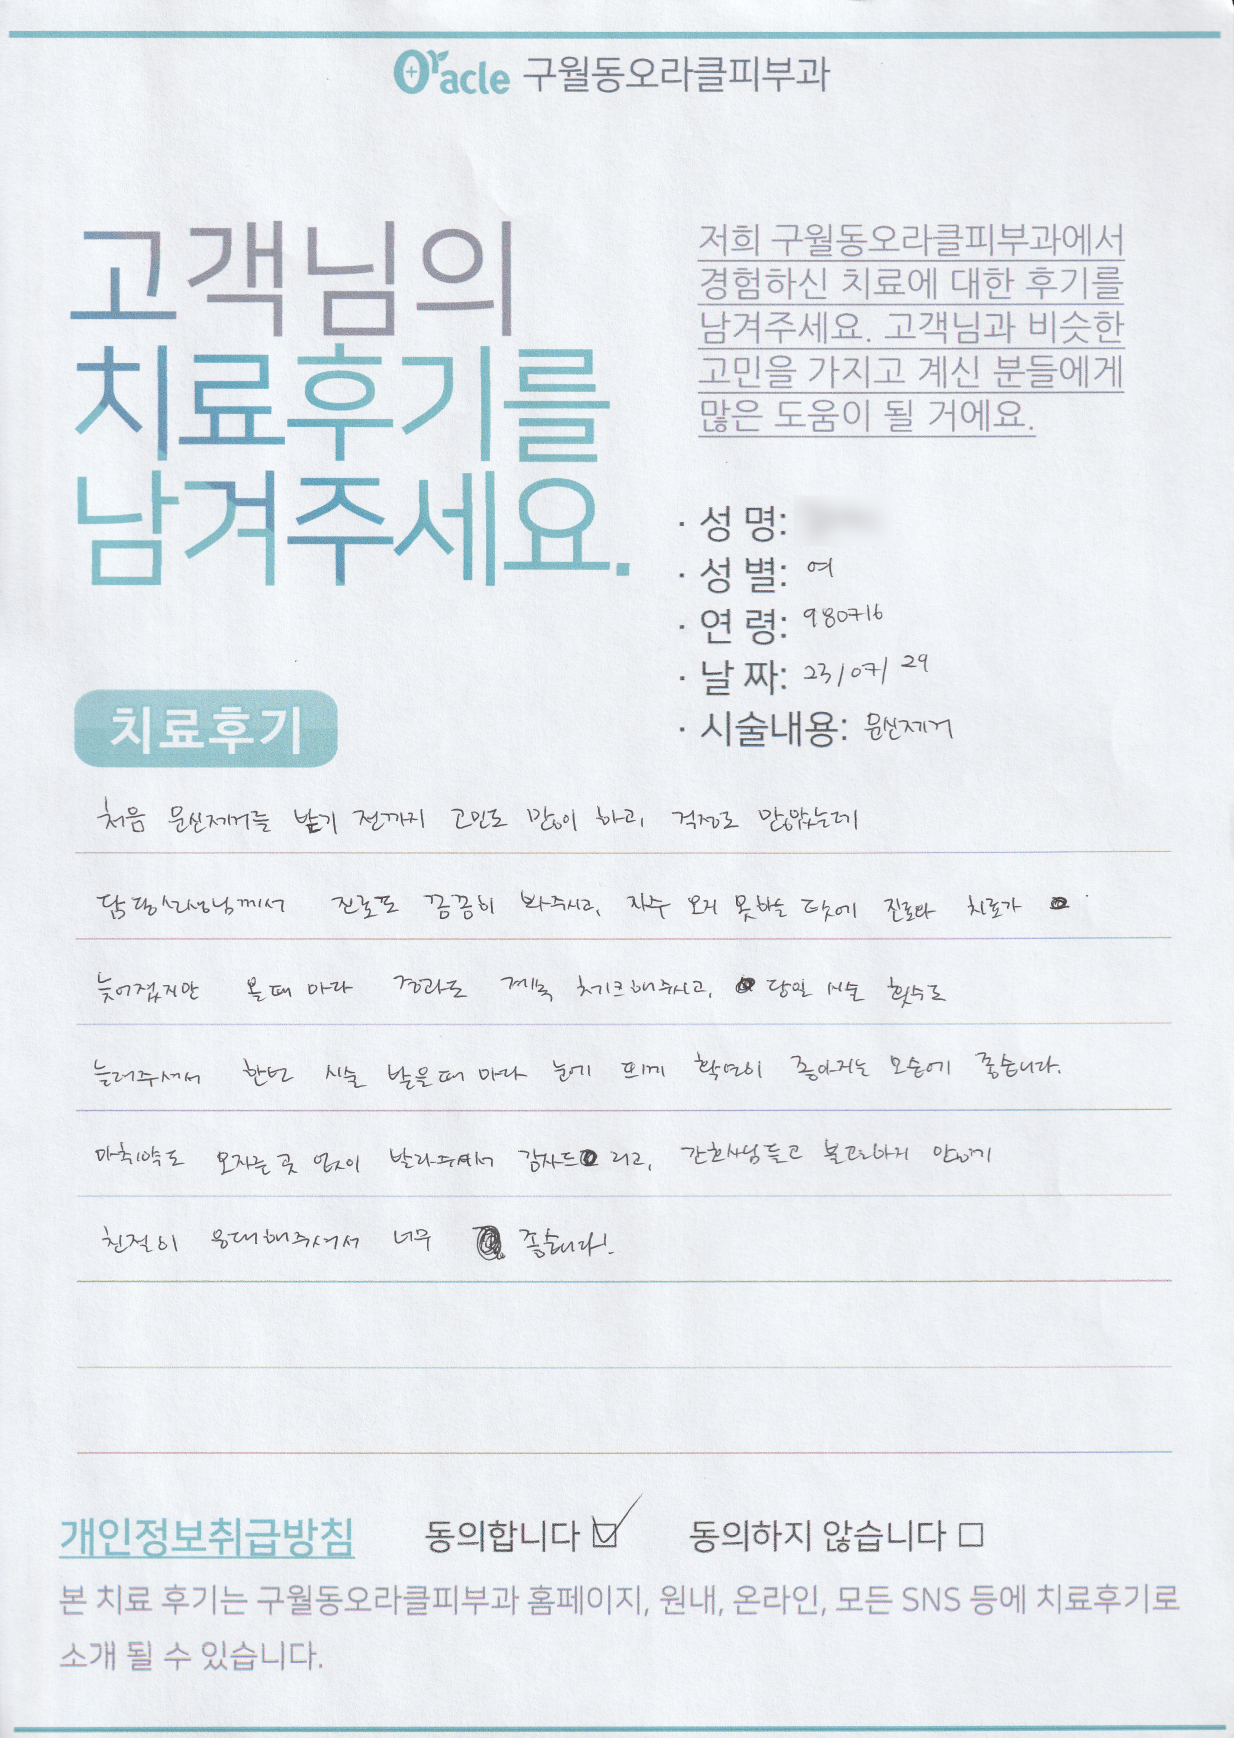 Oracle 구월동오라클피부과
고객님의
치료후기를
남겨주세요.
저희 구월동오라클피부과에서
경험하신 치료에 대한 후기를
남겨주세요. 고객님과 비슷한
고민을 가지고 계신 분들에게
많은 도움이 될 거에요.
· 성 명:
· 성 별: 여
· 연 령: 980716
· 날 짜: 23/07/29
· 시술내용: 문신제거
치료후기
처음 문신제거를 받기 전까지 고민도 많이 하고, 걱정도 많았는데
담당선생님께서 진료도 꼼꼼히 봐주시고, 자주 오지 못하는 탓에 진료와 치료가
늦어졌지만 올때 마다 경과도 계속 체크해주시고, 당일 시술 횟수도
늘려주셔서 한번 시술 받을때 마다 눈에 띄게 확연히 좋아지는 모습에 좋습니다.
마취약도 모자른 곳 없이 발라주셔서 감사드리고, 간호사님들고 불편하지 않게
친절히 응대해주셔서 너무 좋습니다!
개인정보취급방침 동의합니다 ☑ 동의하지 않습니다 □
본 치료 후기는 구월동오라클피부과 홈페이지, 원내, 온라인, 모든 SNS 등에 치료후기로
소개 될 수 있습니다.